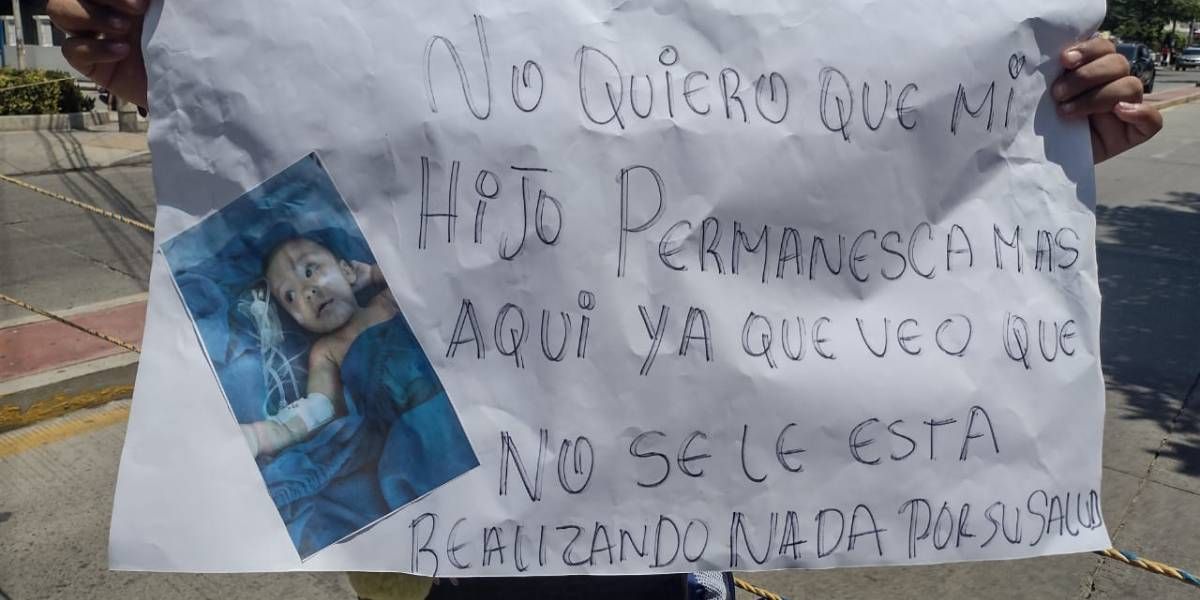 NO QUIERO QUE MI
HIJO PERMANESCA MAS
AQUI YA QUE VEO QUE
NO SE LE ESTA
REALIZANDO NADA POR SU SALUD